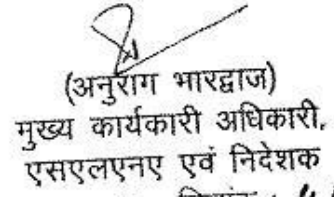 (अनुराग भारद्वाज)
मुख्य कार्यकारी अधिकारी,
एसएलएनए एवं निदेशक